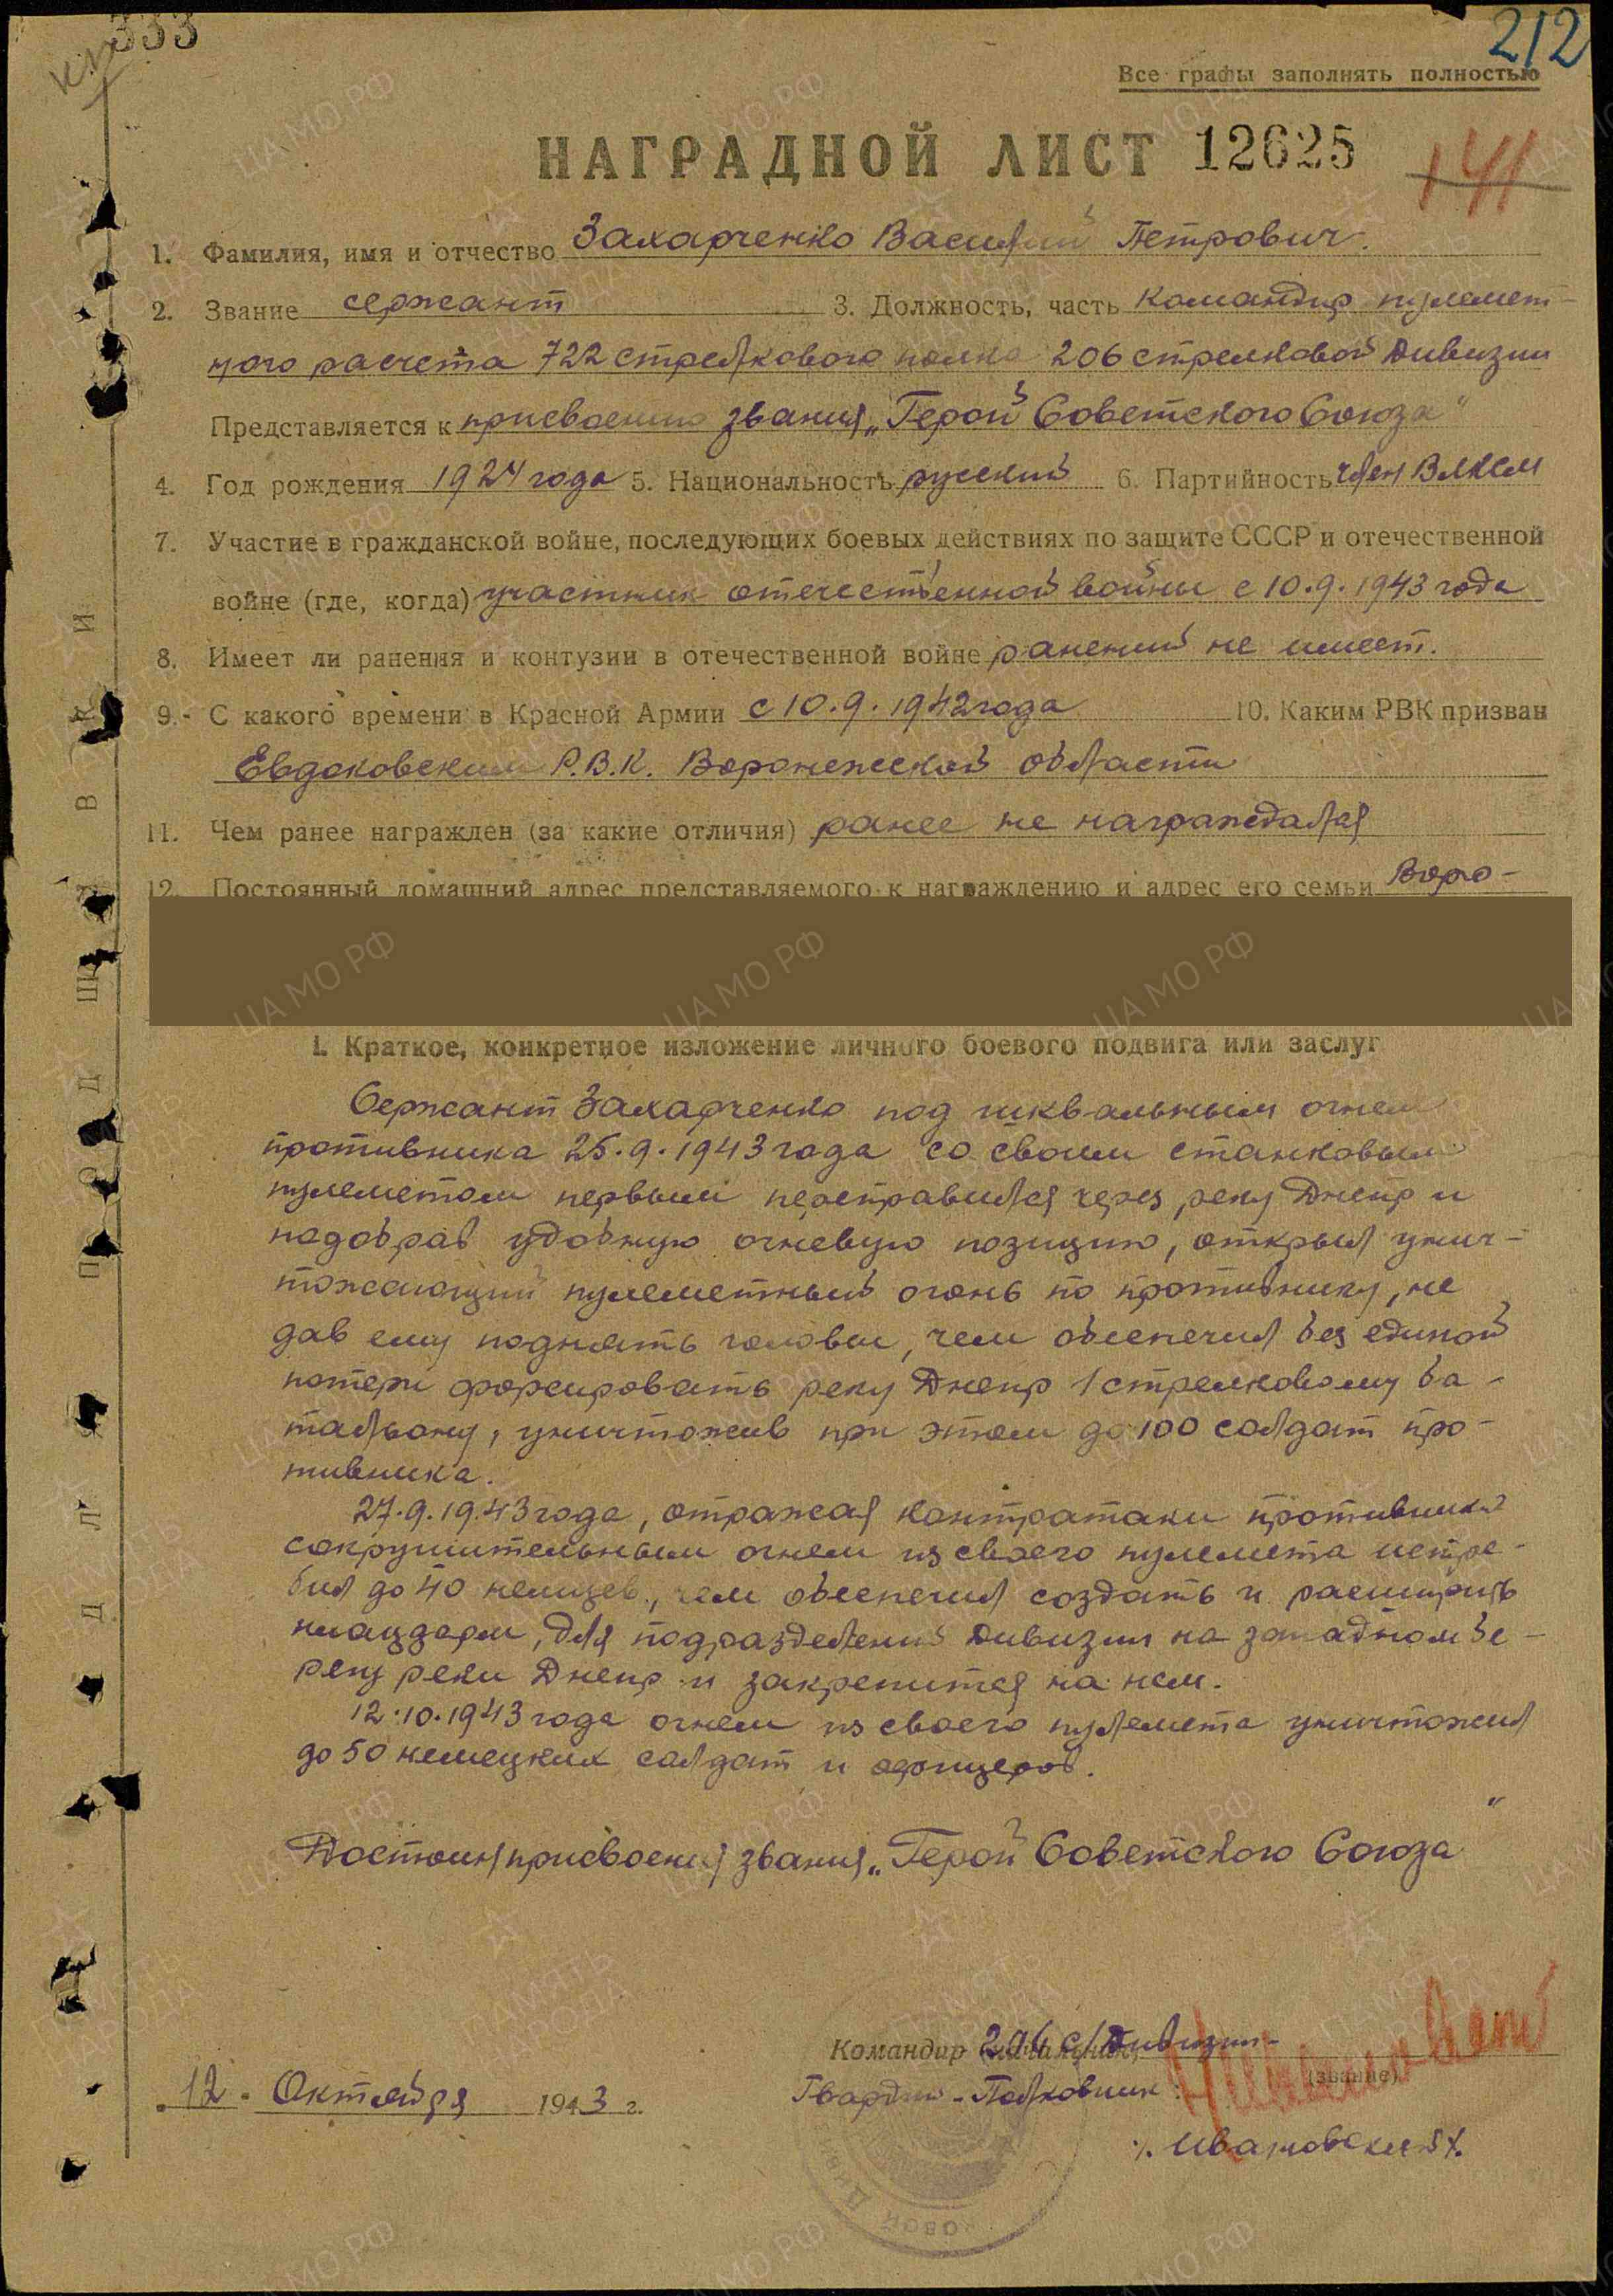 333
212
Все графы заполнять полностью
НАГРАДНОЙ ЛИСТ 12625
141
1. Фамилия, имя и отчество Захарченко Василий Петрович.
2. Звание сержант 3. Должность, часть командир пулемет-
ного расчета 722 стрелкового полка 206 стрелковой дивизии
Представляется к присвоению звания „Герой Советского Союза"
4. Год рождения 1924 года 5. Национальность русский 6. Партийность член ВЛКСМ
7. Участие в гражданской войне, последующих боевых действиях по защите СССР и отечественной
войне (где, когда) участник отечественной войны с 10.9.1943 года
8. Имеет ли ранения и контузии в отечественной войне ранений не имеет.
9. С какого времени в Красной Армии с 10.9.1942 года 10. Каким РВК призван
Евдаковским Р.В.К. Воронежской области
11. Чем ранее награжден (за какие отличия) ранее не награждался
12. Постоянный домашний адрес представляемого к награждению и адрес его семьи Воро-
I. Краткое, конкретное изложение личного боевого подвига или заслуг
Сержант Захарченко под шквальным огнем
противника 25.9.1943 года со своим станковым
пулеметом первым переправился через реку Днепр и
подобрав удобную огневую позицию, открыл унич-
тожающий пулеметный огонь по противнику, не
дав ему поднять головы, чем обеспечил без единой
потери форсировать реку Днепр 1 стрелковому ба-
тальону, уничтожив при этом до 100 солдат про-
тивника.
27.9.1943 года, отражая контратаки противника
сокрушительным огнем из своего пулемета истре-
бил до 40 немцев, чем обеспечил создать и расширить
плацдарм, для подразделений дивизии на западном бе-
регу реки Днепр и закрепится на нем.
12.10.1943 года огнем из своего пулемета уничтожил
до 50 немецких солдат и офицеров.
Достоин присвоения звания „Герой Советского Союза"
Командир (начальник) 206 с/дивизии-
(звание)
Гвардии-Полковник:
12. Октября 1943 г.
/. Ивановский /.
ПОДШИВКИ
ДЛЯ
ЦА МО РФ
ПАМЯТЬ НАРОДА